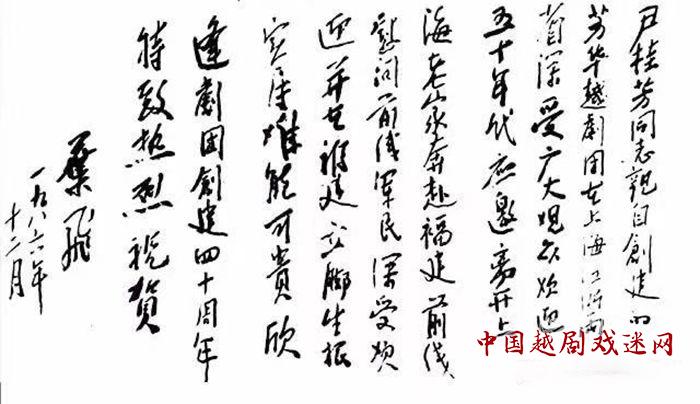 尹桂芳同志親自創建的
芳华越劇团在上海江浙两
省深受广大观众欢迎
五十年代应邀离开上
海老家奔赴福建前线
慰问前线军民深受欢
迎并在福建立脚生根
实在难能可貴欣
逢劇团創建四十周年
特致热烈祝賀
葉飛
一九八六年
十二月
中国越剧戏迷网